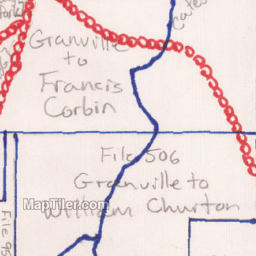 Granville
to
Francis
Corbin
File 506
Granville to
William Churton
MapTiler.com
File 95